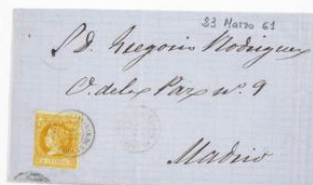 23 Marzo 61
S. D. Gregorio Rodriguez
C. de la Paz nº. 9
Madrid